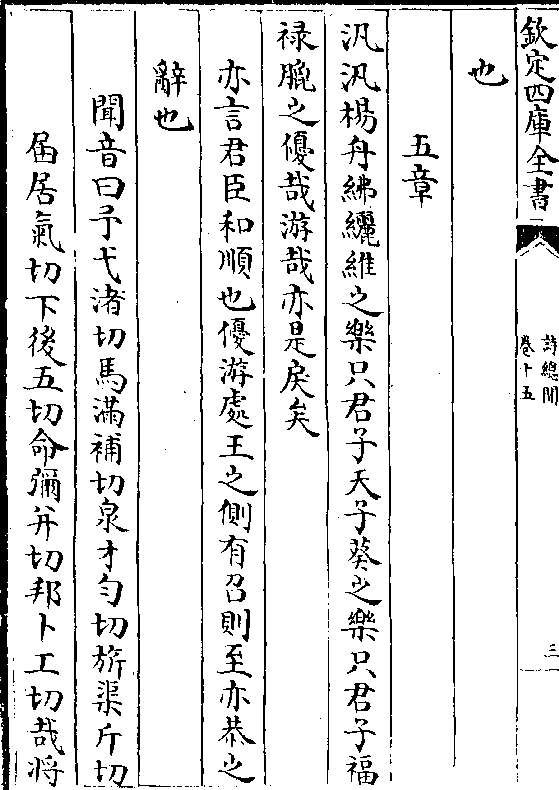 欽定四庫全書
詩總聞
卷十五
三
也
五章
汎汎楊舟紼纚維之樂只君子天子葵之樂只君子福
禄膍之優哉游哉亦是戾矣
亦言君臣和順也優游處王之側有召則至亦恭之
辭也
聞音曰予弋渚切馬滿補切泉才匀切旂渠斤切
届居氣切下後五切命彌并切邦卜工切哉將